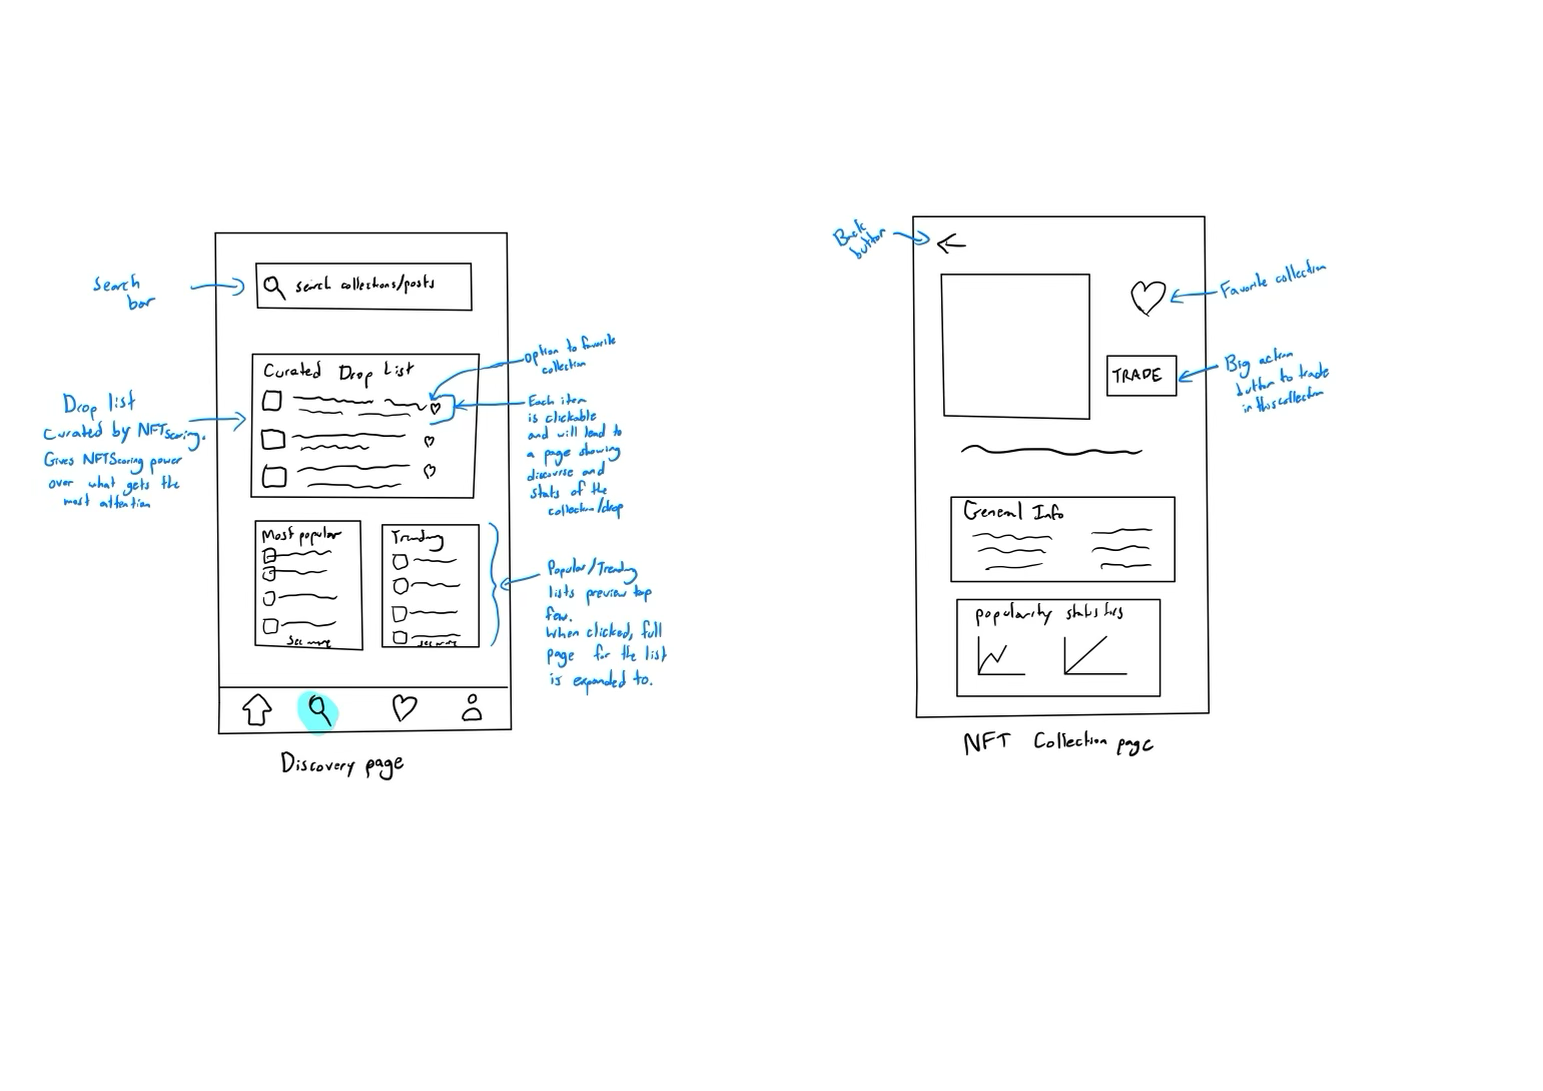 Search
bar
search collections/posts
Curated Drop List
option to favorite
collection
Drop list
Curated by NFTScoring.
Gives NFTScoring power
over what gets the
most attention
Each item
is clickable
and will lead to
a page showing
discourse and
stats of the
collection/drop
Most popular
See more
Trending
See more
Popular/Trending
lists preview top
few.
When clicked, full
page for the list
is expanded to.
Discovery page
Back
button
Favorite collection
TRADE
Big action
button to trade
in this collection
General Info
popularity statistics
NFT Collection page